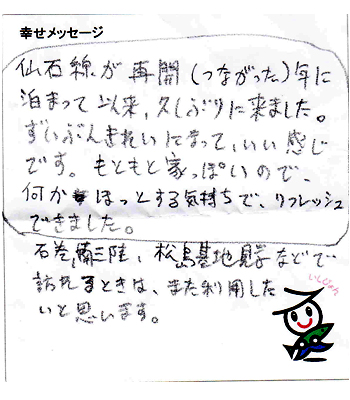 幸せメッセージ
仙石線が再開(つながった)年に
泊まって以来,久しぶりに来ました。
ずいぶんきれいになって、いい感じ
です。もともと家っぽいので、
何かほっとする気持ちで、リフレッシュ
できました。
石巻、南三陸、松島基地見学などで
訪れるときは、また利用した
いと思います。